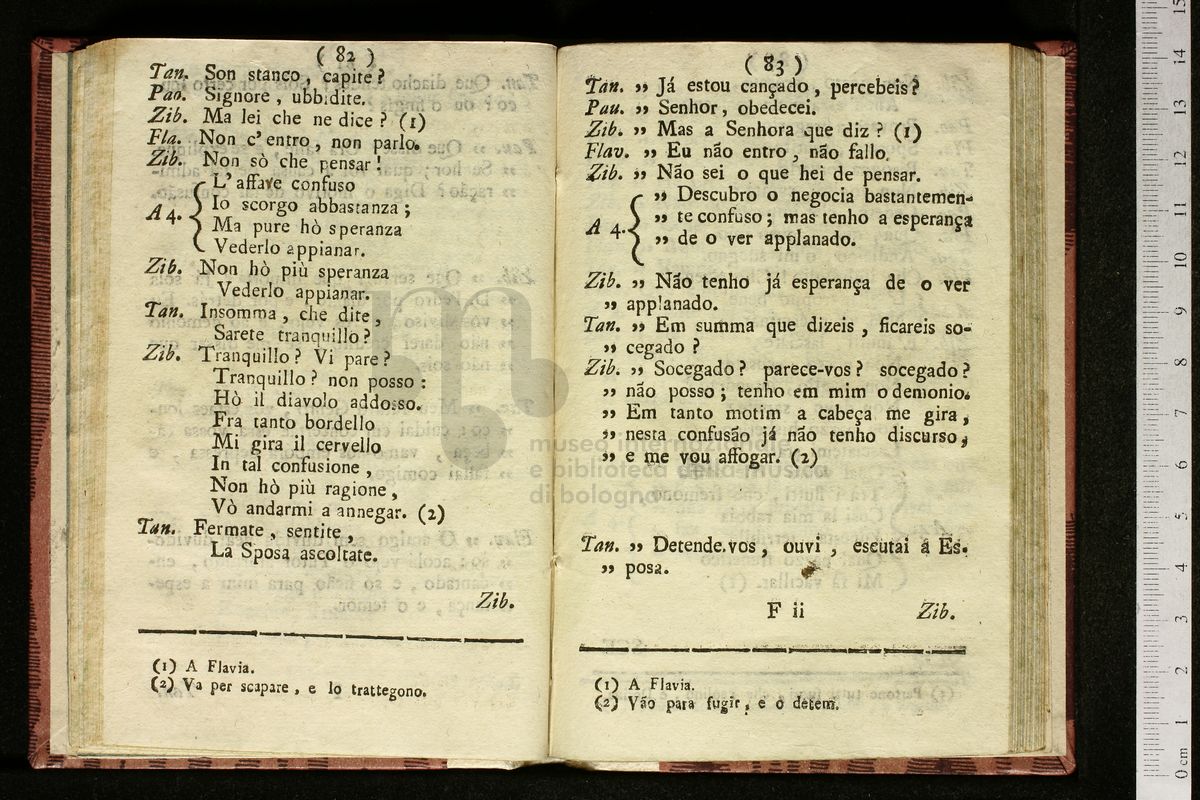 ( 82 )
Tan. Son stanco, capite?
Pao. Signore, ubbidite.
Zib. Ma lei che ne dice? (1)
Fla. Non c'entro, non parlo.
Zib. Non sò che pensar!
L'affare confuso
Io scorgo abbastanza;
A 4. Ma pure hò speranza
Vederlo appianar.
Zib. Non hò più speranza
Vederlo appianar.
Tan. Insomma, che dite,
Sarete tranquillo?
Zib. Tranquillo? Vi pare?
Tranquillo? non posso:
Hò il diavolo addosso.
Fra tanto bordello
Mi gira il cervello
In tal confusione,
Non hò più ragione,
Vò andarmi a annegar. (2)
Tan. Fermate, sentite,
La Sposa ascoltate.
Zib.
(1) A Flavia.
(2) Va per scapare, e lo trattegono.
( 83 )
Tan. ,, Já estou cançado, percebeis?
Pau. ,, Senhor, obedecei.
Zib. ,, Mas a Senhora que diz? (1)
Flav. ,, Eu não entro, não fallo.
Zib. ,, Não sei o que hei de pensar.
,, Descubro o negocia bastantemen-
A 4. ,, te confuso; mas tenho a esperança
,, de o ver applanado.
Zib. ,, Não tenho já esperança de o ver
,, applanado.
Tan. ,, Em summa que dizeis, ficareis so-
,, cegado?
Zib. ,, Socegado? parece-vos? socegado?
,, não posso; tenho em mim o demonio.
,, Em tanto motim a cabeça me gira,
,, nesta confusão já não tenho discurso,
,, e me vou affogar. (2)
Tan. ,, Detende.vos, ouvi, escutai á Es-
,, posa.
F ii Zib.
(1) A Flavia.
(2) Vão para fugir, e o detem.
museo internazionale
e biblioteca della musica
di bologna
0 cm 1 2 3 4 5 6 7 8 9 10 11 12 13 14 15